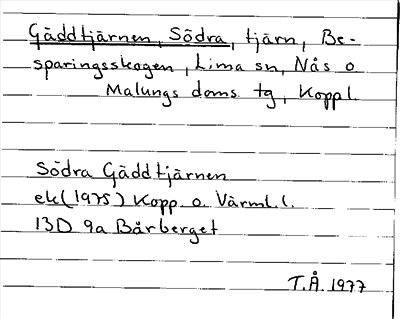 Gäddtjärnen, Södra, tjärn, Be-
sparingsskogen, Lima sn, Nås o
Malungs doms. tg, Koppl.
Södra Gäddtjärnen
ek(1975) Kopp. o. Värml.l.
13D 9a Bårberget
T.Å. 1977